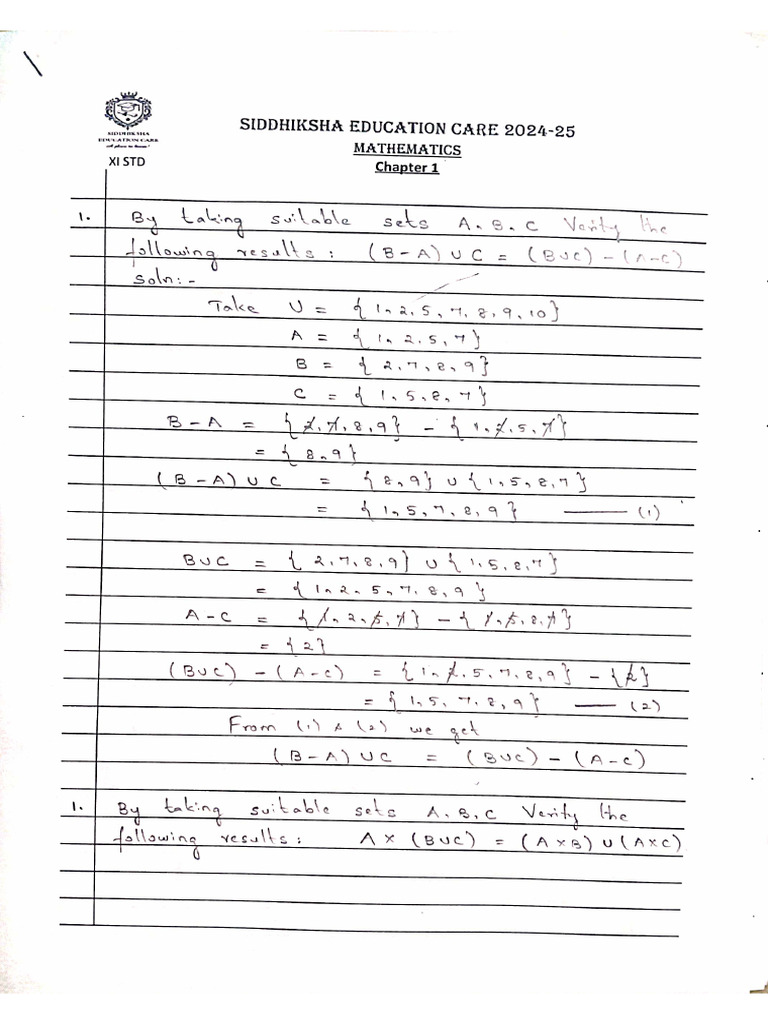 SIDDHIKSHA
EDUCATION CARE
SIDDHIKSHA EDUCATION CARE 2024-25
MATHEMATICS
XI STD
Chapter 1
1. By taking suitable sets A, B, C Verify the
following results : (B - A) ∪ C = (B∪C) - (A-C)
soln:-
Take U = {1, 2, 5, 7, 8, 9, 10}
A = {1, 2, 5, 7}
B = {2, 7, 8, 9}
C = {1, 5, 8, 7}
B - A = {2, 7, 8, 9} - {1, 2, 5, 7}
= {8, 9}
(B - A) ∪ C = {8, 9} ∪ {1, 5, 8, 7}
= {1, 5, 7, 8, 9} —— (1)
B∪C = {2, 7, 8, 9} ∪ {1, 5, 8, 7}
= {1, 2, 5, 7, 8, 9}
A - C = {1, 2, 5, 7} - {1, 5, 8, 7}
= {2}
(B∪C) - (A-C) = {1, 2, 5, 7, 8, 9} - {2}
= {1, 5, 7, 8, 9} —— (2)
From (1) & (2) we get
(B - A) ∪ C = (B∪C) - (A - C)
1. By taking suitable sets A, B, C Verify the
following results : A × (B∪C) = (A×B) ∪ (A×C)